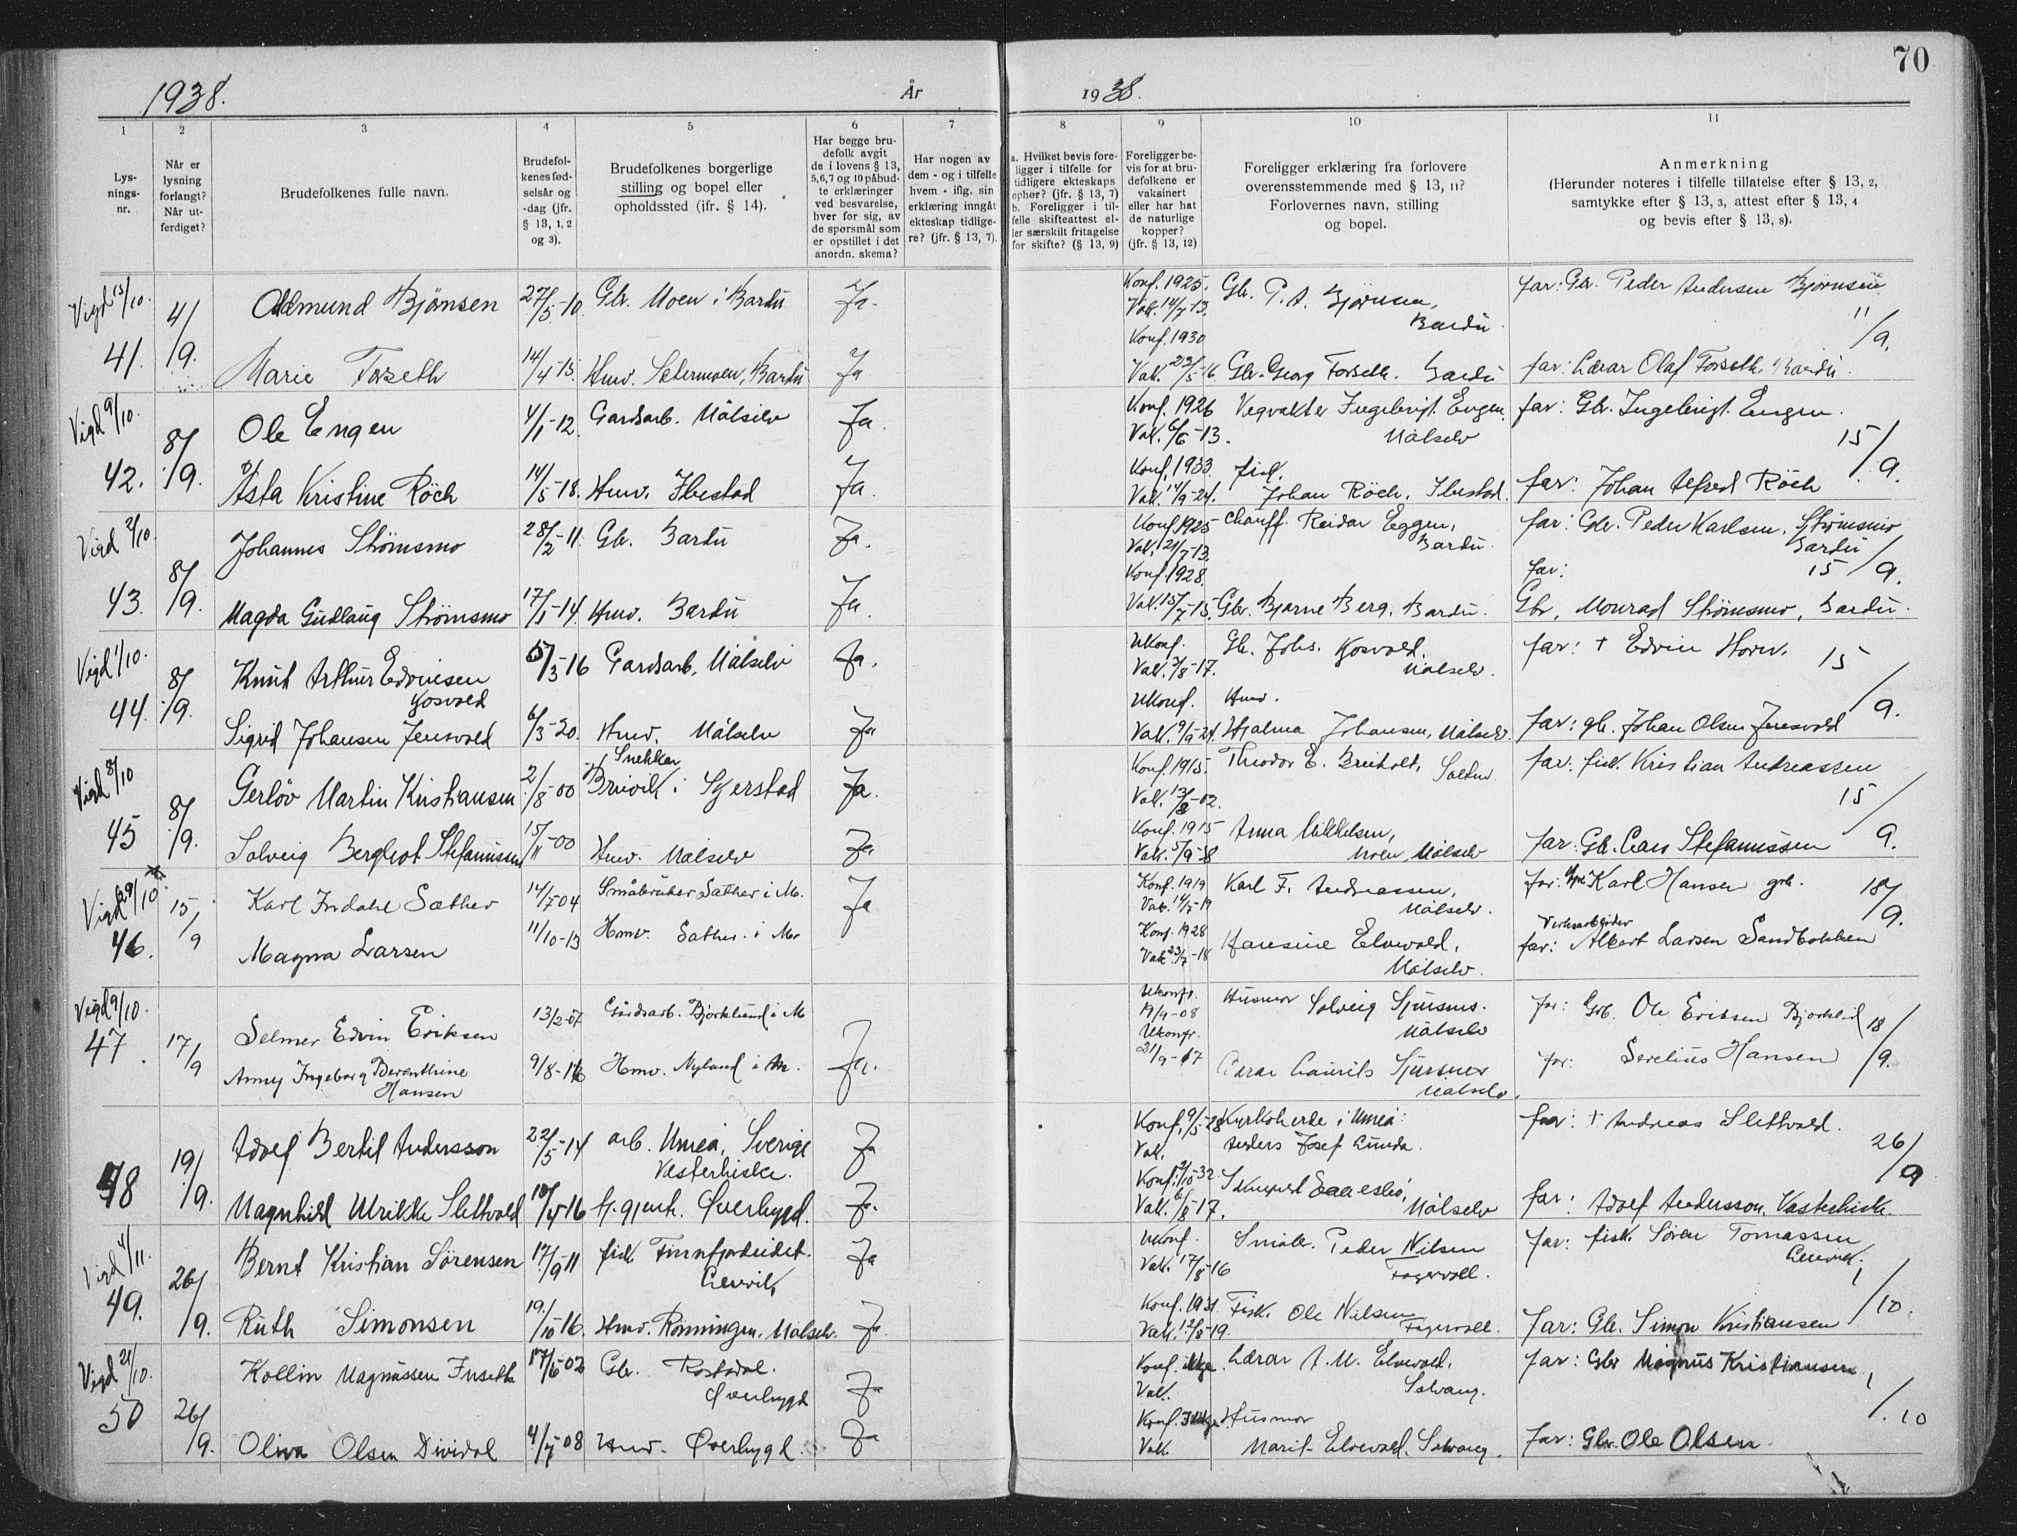 70
1938.
År
1938.
1
2
3
4
5
6
7
8
9
10
11
Lys-
nings-
nr.
Når er
lysning
forlangt?
Når ut-
ferdiget?
Brudefolkenes fulle navn.
Brudefol-
kenes fød-
selsår og
-dag (jfr.
§ 13, 1, 2
og 3).
Brudefolkenes borgerlige
stilling og bopel eller
opholdssted (jfr. § 14).
Har begge bru-
defolk avgit
de i lovens § 13,
5,6,7 og 10 påbud-
te erklæringer
ved besvarelse,
hver for sig, av
de spørsmål som
er opstillet i det
anordn. skema?
Har nogen av
dem - og i tilfelle
hvem - iflg. sin
erklæring inngått
ekteskap tidlige-
re? (jfr. § 13, 7).
a. Hvilket bevis fore-
ligger i tilfelle for
tidligere ekteskaps
ophør? (jfr. § 13, 7)
b. Foreligger i til-
felle skifteattest el-
ler særskilt fritagelse
for skifte? (§ 13, 9)
Foreligger be-
vis for at bru-
defolkene er
vaksinert
eller har hat
de naturlige
kopper?
(jfr. § 13, 12)
Foreligger erklæring fra forlovere
overensstemmende med § 13, 11?
Forlovernes navn, stilling
og bopel.
Anmerkning
(Herunder noteres i tilfelle tillatelse efter § 13, 2,
samtykke efter § 13, 3, attest efter § 13, 4
og bevis efter § 13, 8).
Vigd 15/10.
41.
4/9.
Odmund Bjørnsen
27/5-10
Gbr. Moen i Bardu
Ja.
Konf. 1925.
Vak. 14/7-13.
Gbr. P. A. Bjørnsen,
Bardu.
far: Gbr. Peder Andersen Bjørnsen
11/9.
Marie Forseth
14/4-15.
Hmv. Setermoen, Bardu
Ja
Konf. 1930
Vak. 23/5-16
Gbr. Georg Forseth. Bardu
far: Lærar Olaf Forseth, Bardu.
Vigd 9/10.
42.
8/9.
Ole Engen
4/1-12.
Gardsarb. Målselv
Ja.
Konf. 1926
Vak. 6/6-13.
Vegvakter Ingebrigt Engen.
Målselv
far: Gbr. Ingebrigt Engen.
15/9.
Åsta Kristine Röch
14/5-18.
Hmv. Ibestad
Ja.
Konf. 1933
Vak. 14/9-24.
fisk.
Johan Röch. Ibestad.
far: Johan Alfred Röch
Vigd 2/10.
43.
8/9.
Johannes Strømsmo
28/2-11.
Gbr. Bardu
Ja.
Konf. 1925
Vak. 21/7-13.
Chauff. Reidar Eggen,
Bardu.
far: Gbr. Peder Karlsen, Strømsmo
Bardu
15/9.
Magda Gudlaug Strømsmo
17/1-14.
Hmv. Bardu
Ja.
Konf. 1928.
Vak. 15/7-15.
Gbr. Bjarne Berg, Bardu.
far:
Gbr. Monrad Strømsmo, Bardu.
Vigd 1/10.
44.
8/9.
Knut Arthur Edvinsen
Kosvold
5/3-16
Gardsarb. Målselv
Ja.
Ukonf.
Vak. 3/8-17.
Gb. Johs. Kosvold.
Målselv.
far: + Edvin Horv.
15/9.
Sigrid Johansen Jensvold
6/3-20.
Hmv. Målselv
Ja
Ukonf.
Vak. 9/9-21.
Hmv.
Hjalma Johansen, Målselv.
far: gb. Johan Olsen Jensvold
Vigd 8/10
45
8/9.
Gerløv Martin Kristiansen
2/8-00
Snekker
Breivik i Skjerstad
Ja.
Konf. 1915.
Vak. 13/8-02.
Theodor E. Breiholt,
far: fisk. Kristian Andreassen
15/9.
Solveig Bergljot Stefanussen
15/11-00
Hmv. Målselv
Ja
Konf. 1915
Anna Mikkelsen,
Moen Målselv
far: Gb. Lars Stefanussen
Vigd 29/10
46.
15/9
Karl Indahl Sæther
14/7 04
Småbruker Sæther i M.
Ja
Konf. 1919
Karl F. Andreassen,
Målselv.
far: Karl Hansen grb.
18/9.
Magna Larsen
11/10-13
Hmv. Sæther i M.
Konf. 1928
Vak. 23/7-18
Haresine Elvevold,
Målselv.
Verksarbeider
far: Albert Larsen Sandbakken
Vigd 9/10.
47.
17/9
Selmer Edvin Eriksen
13/2-07
Gårdsarb. Bjørklund i M
Ja.
Ukonfr.
19/9-08
Husmor Solveig Sjursns.
Målselv
far: Grb. Ole Eriksen Bjørklid
18/9.
Anny Ingeborg Berenthine
Hansen
9/8-16
Hmv. Nyland i M.
Ukonfr.
21/9-17
Lærar Laurits Sjursnes
Målselv.
far: Serelius Hansen
48
19/9.
Adolf Bertil Andersson
22/5-14
arb. Umeå, Sverige
Vesterhiske.
Ja
Konf. 9/5-28
Vak.
Kyrkoherde i Umeå:
Anders Josef Lunda.
far: + Andreas Slettvold.
26/9
Magnhild Ulrikke Slettvold
10/4-16
Øverbygd.
Ja.
Vak. 6/8-17.
Målselv
far: Adolf Andersson, Vasterhisk.
Vigd 4/11.
49.
26/9.
Bernt Kristian Sørensen
17/9 11
fisk. Finnfjordeidet.
Lenvik
Ja
Ukonf.
Vak. 17/8-16
Småbr. Peder Nilsen
Fagervoll.
far: fisk. Søren Tomassen
Lenvik.
1/10.
Ruth Simonsen
19./10-16.
Hmv. Rønningen, Målselv.
Ja.
Konf. 1931
Vak. 12/8-19.
Fisk. Ole Nilsen
Fagervoll.
far: Gb. Simon Kristiansen
Vigd 21/10.
50
26/9.
Kollin Magnussen Fuseth
17/6-02
Gbr. Rostadal.
Øverbygd
Ja
Konf. ikkje
Vak.
Lærar A. M. Elvevold,
Solvang.
far: Gbr Magnus Kristiansen
1/10
Oliva Olsen Dividal
4/7-08
Hmv. Øverbygd.
Ja
Konf. Ikkje
Vak.
Husmor
Marit Elvevold, Solvang.
far: Gbr. Ole Olsen.